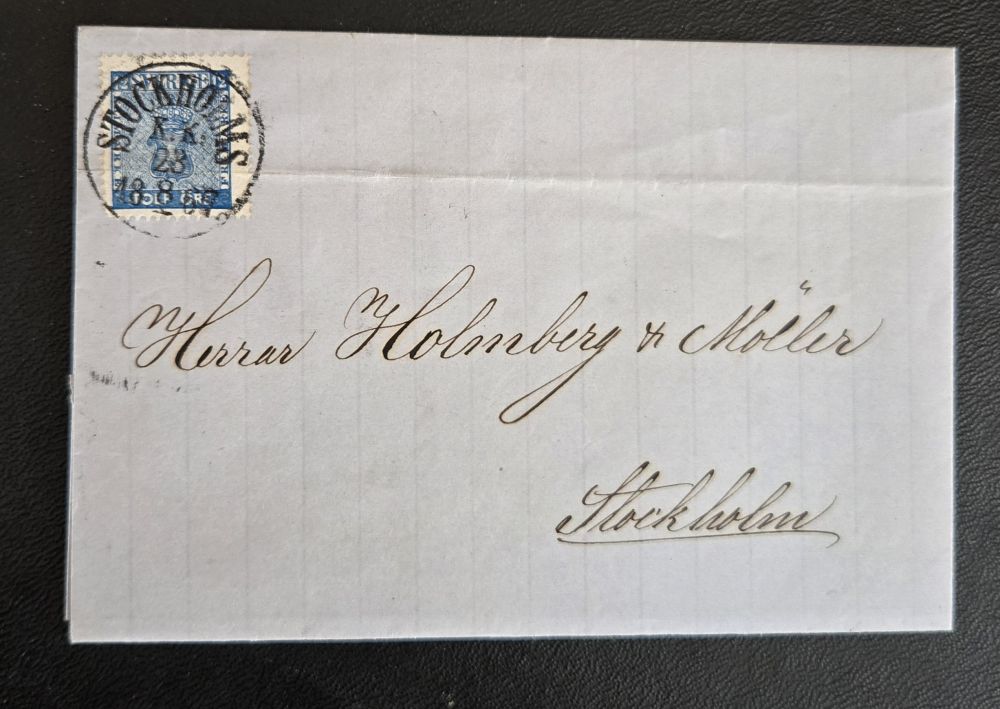 SVERIGE
STOCKHOLMS
K. K.
23
18 8
TOLF ÖRE
Herrar Holmberg & Möller
Stockholm